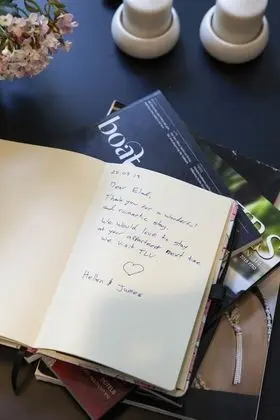 boat
20.09.19
Dear Elad,
Thank you for a wonderful
and romantic stay.
We would love to stay
at your apartment next time
we visit TLV
Helen & James